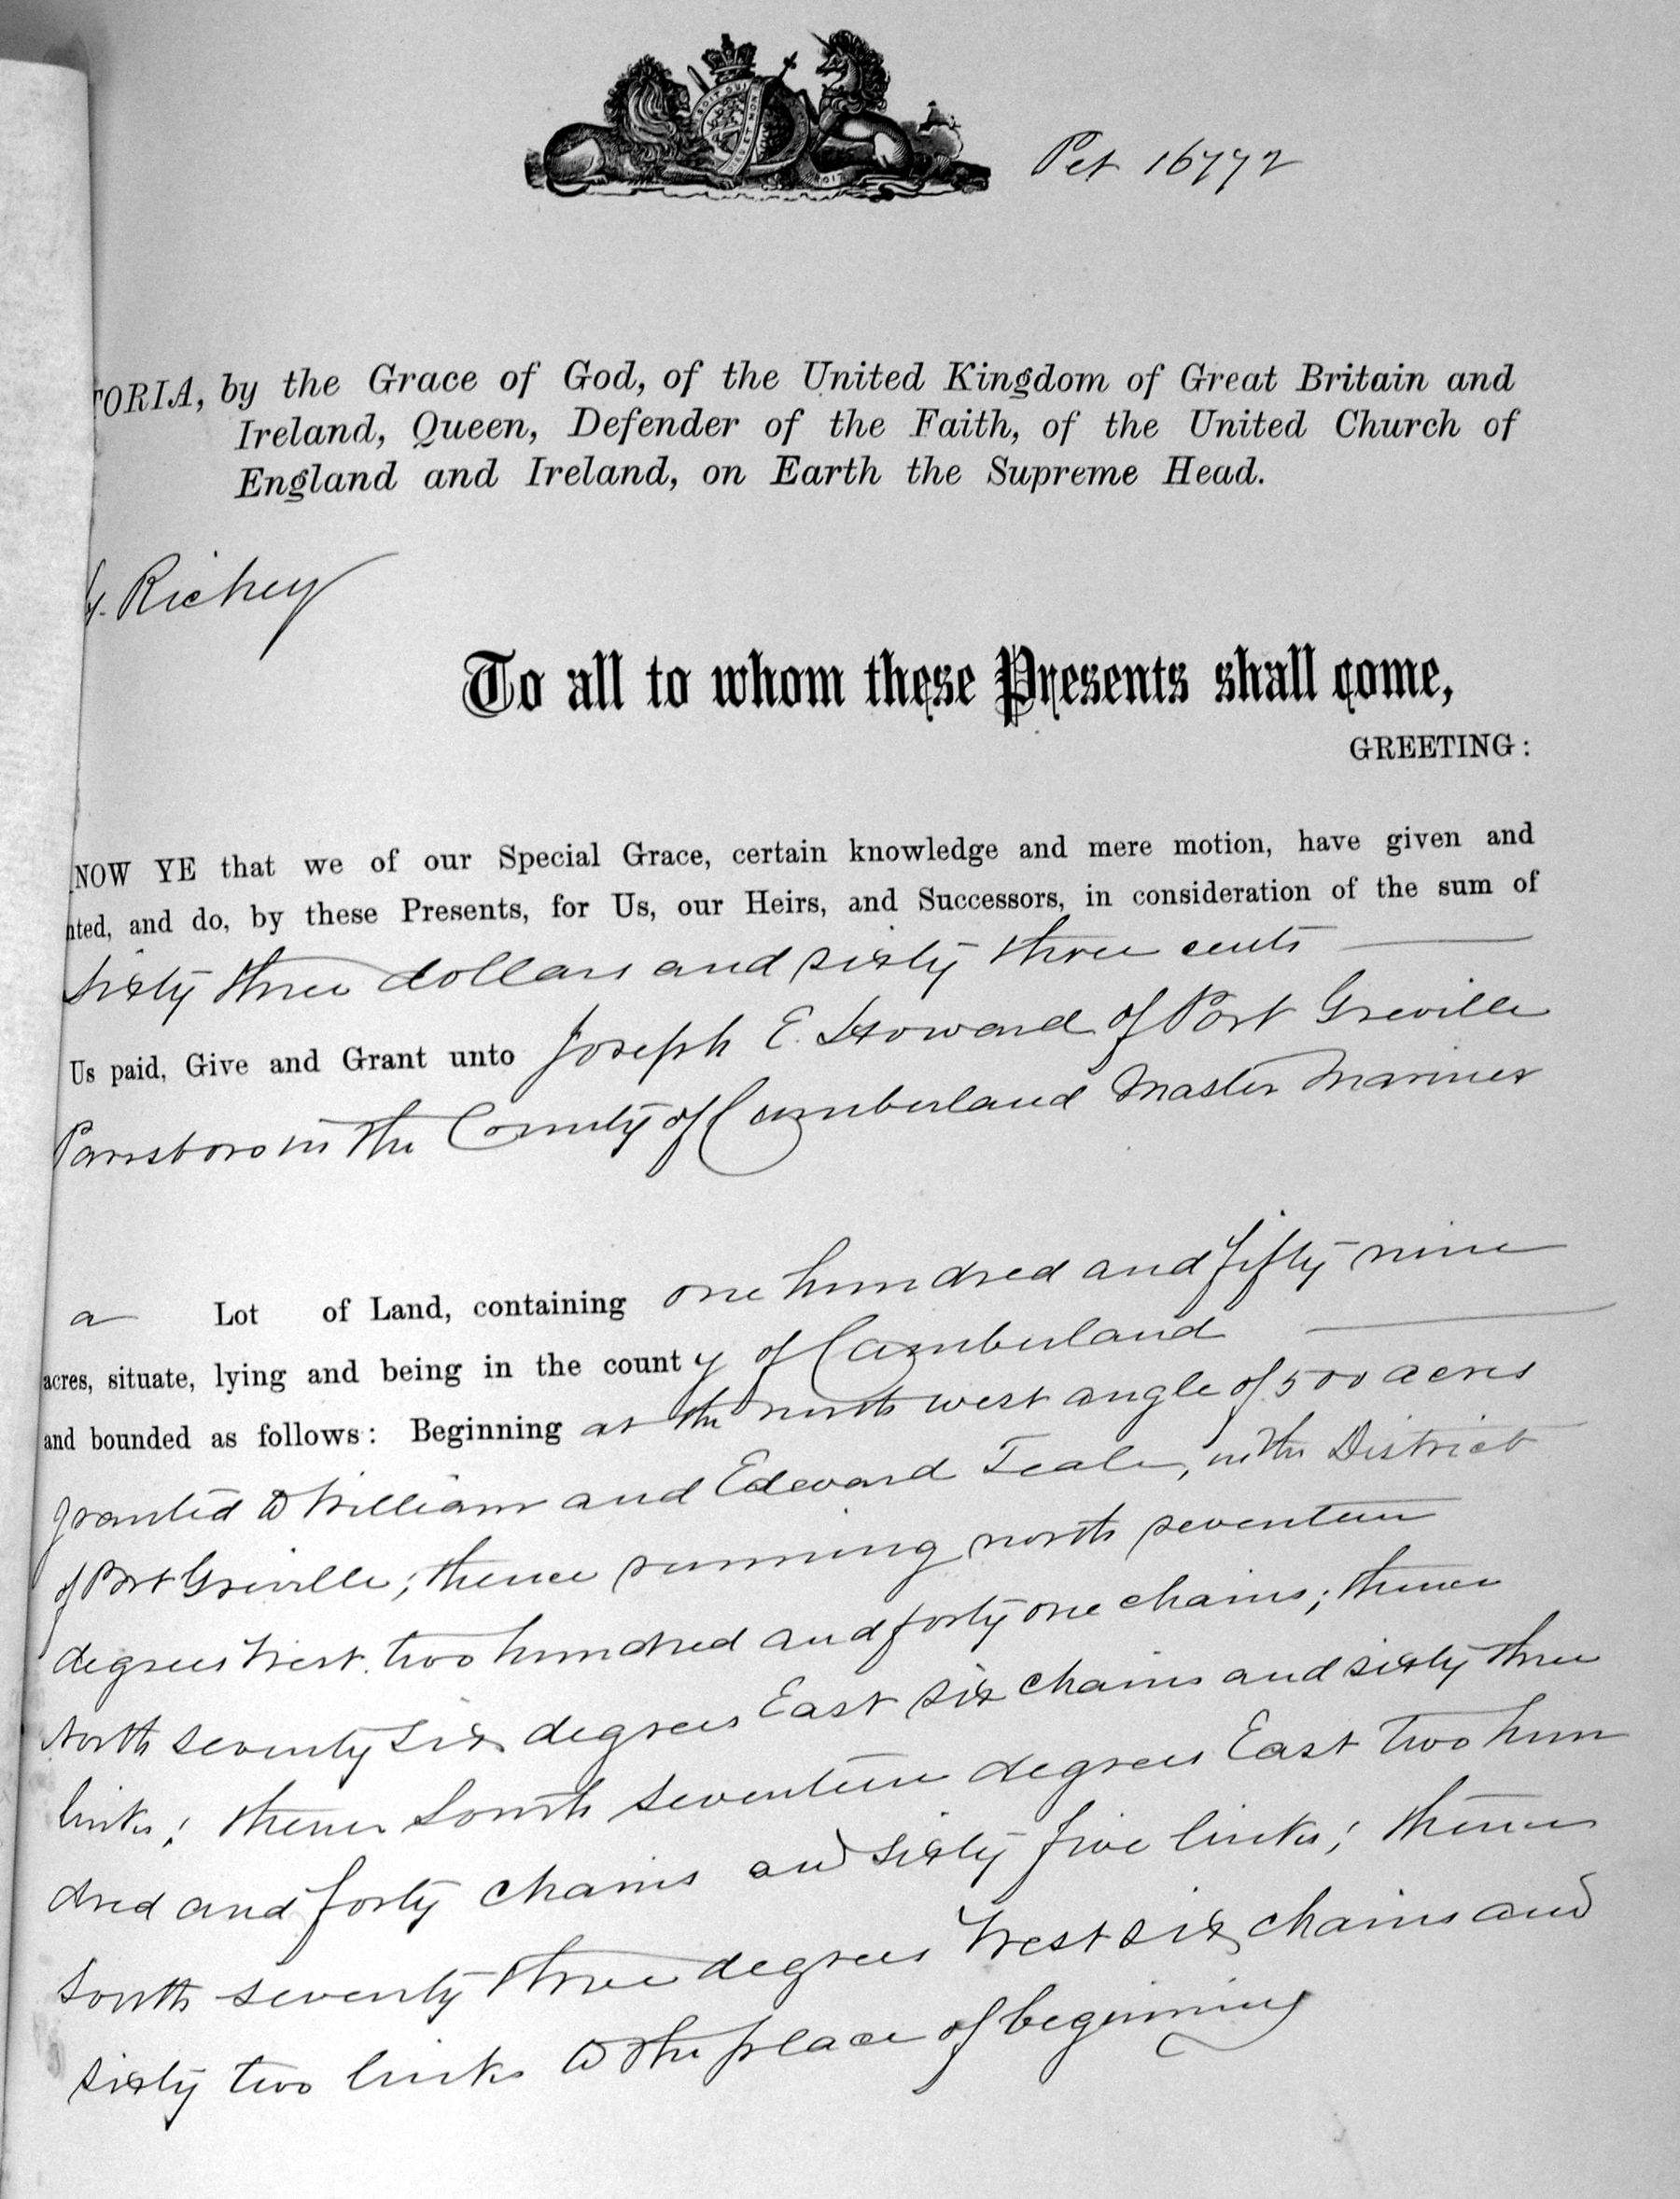 Pet 16772
TORIA, by the Grace of God, of the United Kingdom of Great Britain and
Ireland, Queen, Defender of the Faith, of the United Church of
England and Ireland, on Earth the Supreme Head.
Richey
To all to whom these Presents shall come,
GREETING:
NOW YE that we of our Special Grace, certain knowledge and mere motion, have given and
nted, and do, by these Presents, for Us, our Heirs, and Successors, in consideration of the sum of
Sixty three dollars and sixty three cents
Us paid, Give and Grant unto Joseph E. Howard of Port Greville
Parrsboro in the County of Cumberland Master Mariner
a Lot of Land, containing one hundred and fifty nine
acres, situate, lying and being in the county of Cumberland
and bounded as follows: Beginning at the north west angle of 500 acres
granted to William and Edward Teale, in the District
of Port Greville; thence running north seventeen
degrees West two hundred and forty one chains; thence
North seventy six degrees East six chains and sixty three
links; thence South seventeen degrees East two hun
dred and forty chains and sixty five links; thence
South seventy three degrees West six chains and
sixty two links to the place of beginning